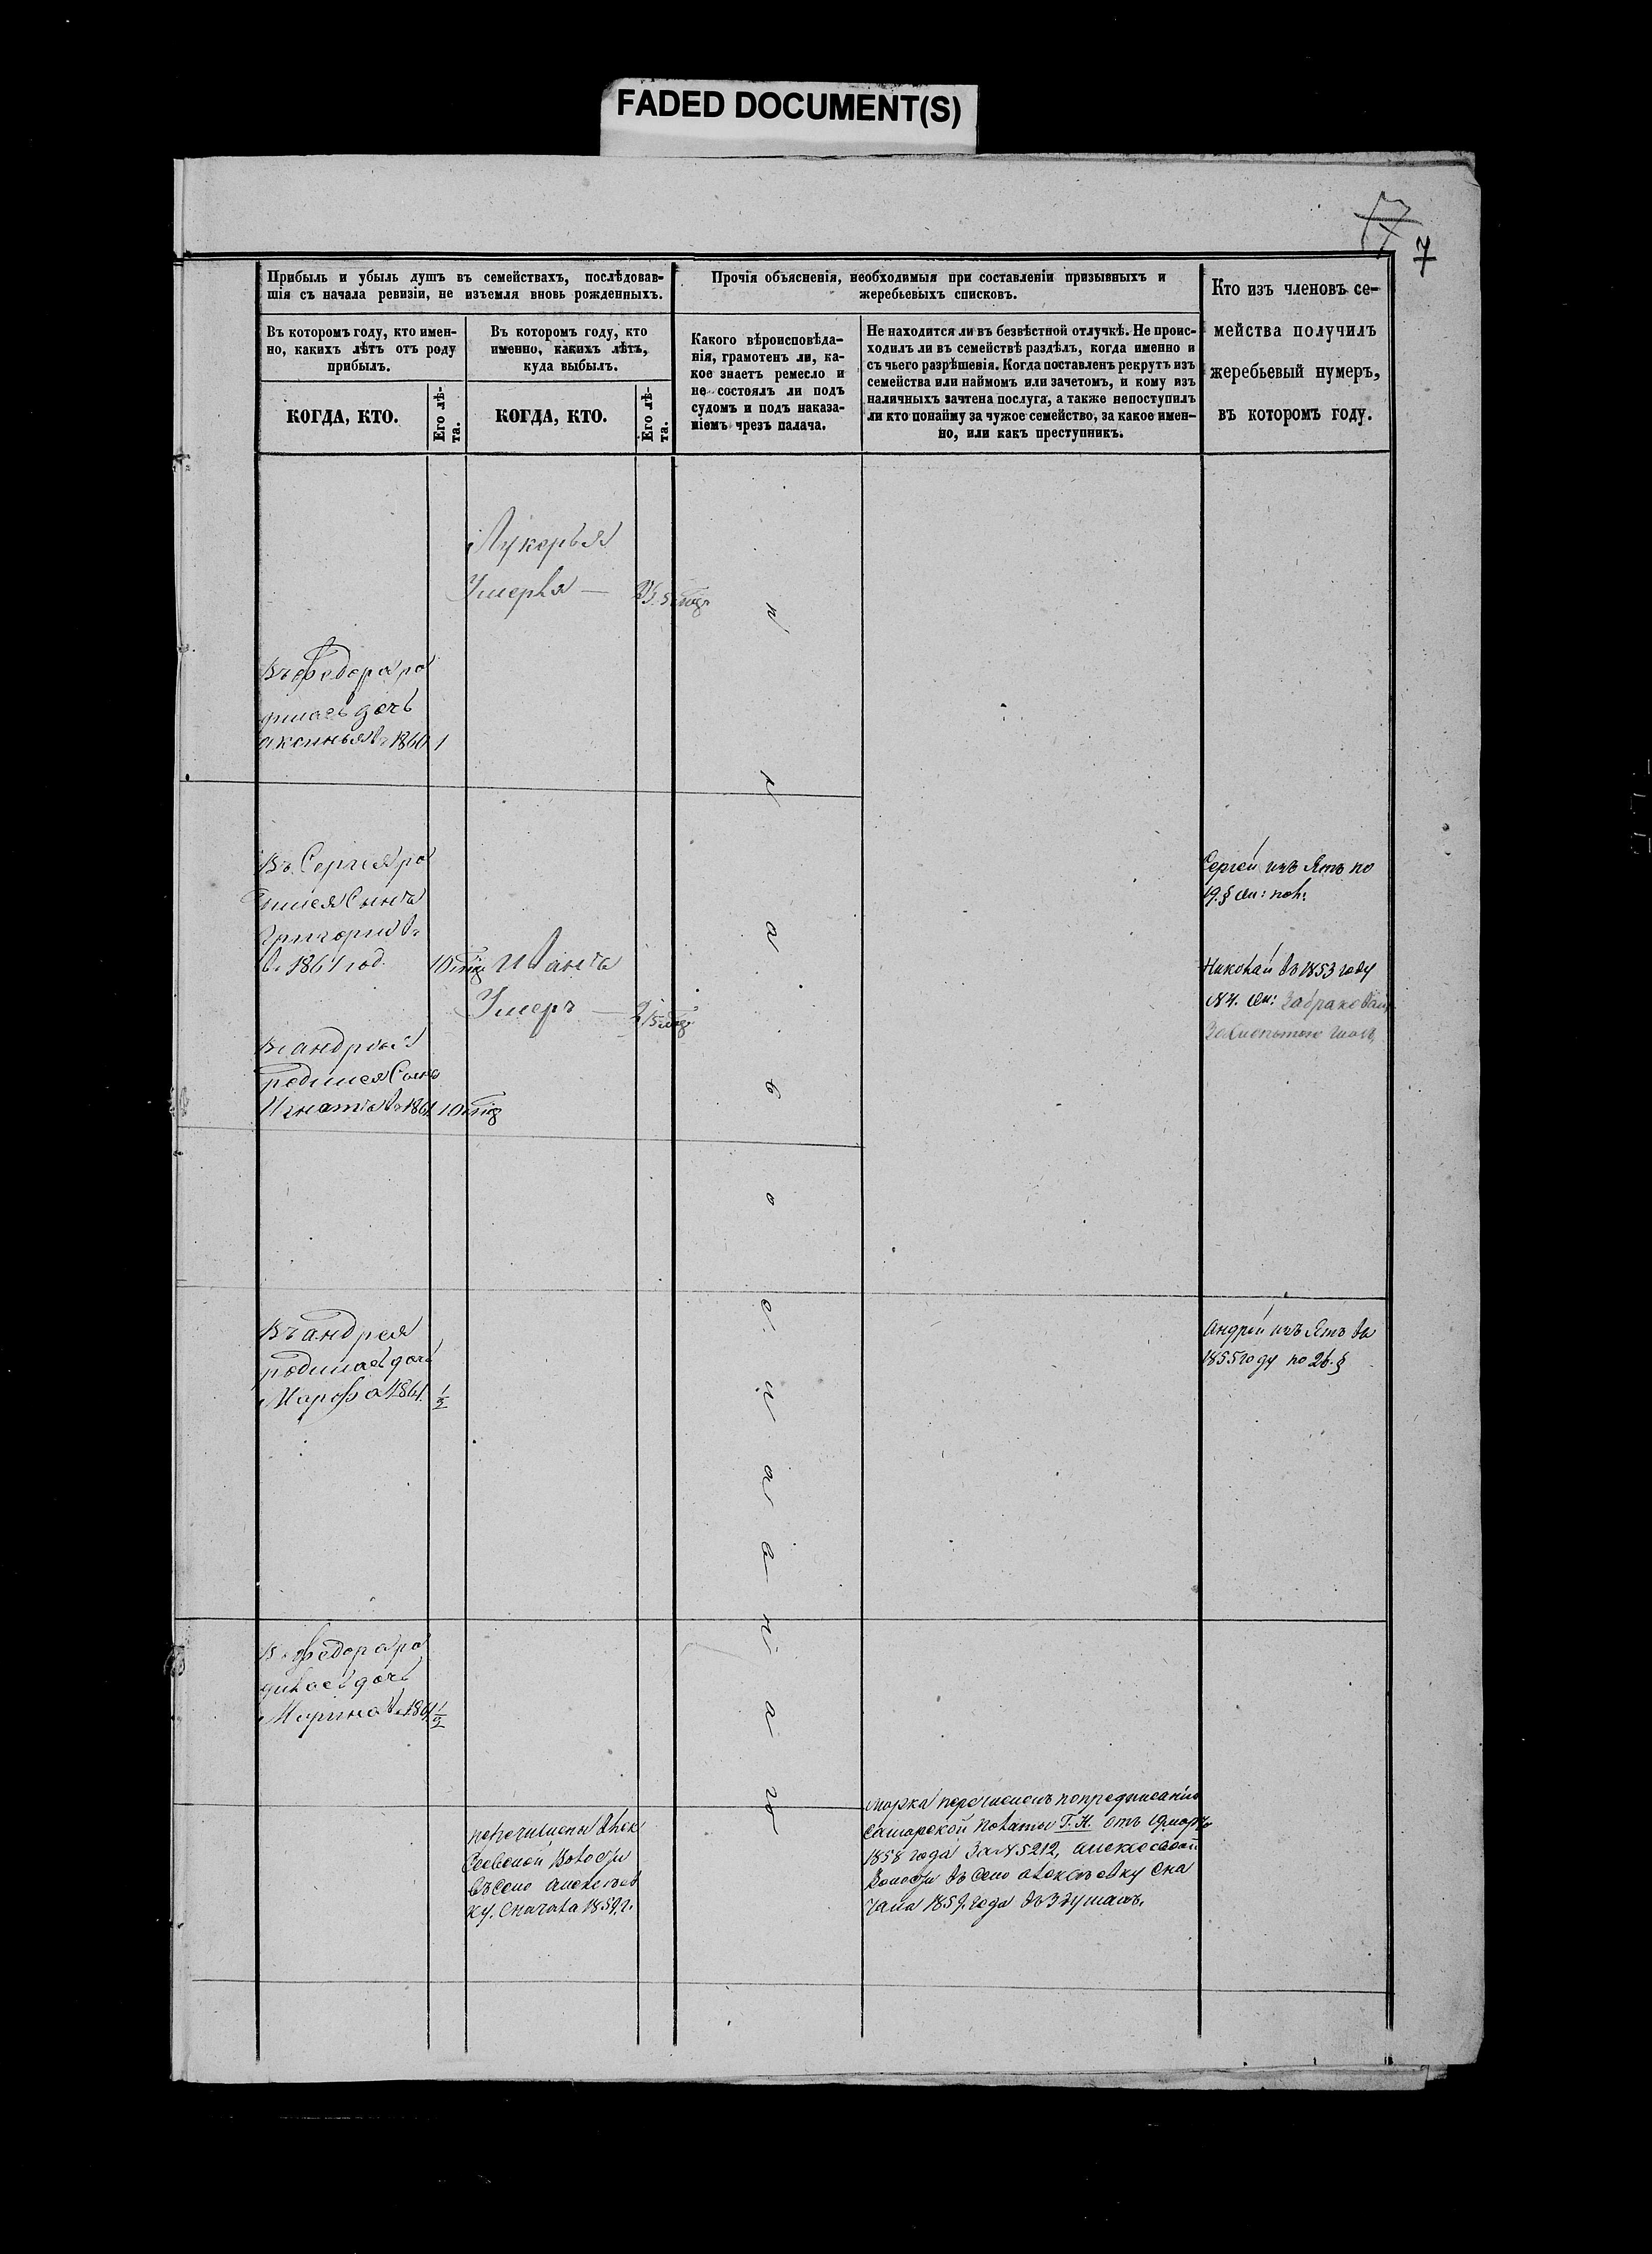 FADED DOCUMENT(S)
17
7
Прибыль и убыль душъ въ семействахъ, послѣдовав-
шія съ начала ревизіи, не изъемля вновь рожденныхъ.
Прочія объясненія, необходимыя при составленіи призывныхъ и
жеребьевыхъ списковъ.
Кто изъ членовъ се-
мейства получилъ
жеребьевый нумеръ,
въ которомъ году.
Въ которомъ году, кто имен-
но, какихъ лѣтъ отъ роду
прибылъ.
Въ которомъ году, кто
именно, какихъ лѣтъ,
куда выбылъ.
Какого вѣроисповѣда-
нія, грамотенъ ли, ка-
кое знаетъ ремесло и
не состоялъ ли подъ
судомъ и подъ наказа-
ніемъ чрезъ палача.
Не находится ли въ безвѣстной отлучкѣ. Не проис-
ходилъ ли въ семействѣ раздѣлъ, когда именно и
съ чьего разрѣшенія. Когда поставленъ рекрутъ изъ
семейства или наймомъ или зачетомъ, и кому изъ
наличныхъ зачтена послуга, а также непоступилъ
ли кто понайму за чужое семейство, за какое имен-
но, или какъ преступникъ.
КОГДА, КТО.
Его лѣ-
та.
КОГДА, КТО.
Его лѣ-
та.
Лукерья
Умерла —
Въ Федора ро
дилась дочь
аксинья въ 1860 1
Въ Сергия ро
дился Сынъ
Григории въ
1861 год.
Иванъ
Умеръ —
родился Сынъ
Игнатъ въ 1861
Въ андрея
родилась дочь
Марфа 1861 1/2
В Федора ро
дилась дочь
Марина въ 1861 1/2
православнаго
Сергей изъ Ятъ по
19.§
Николай въ 1853 году
Забракован
андрей изъ Ятъ въ
1855 году по 26.§
перечислены
Волости
въ Село алексѣев
ку. Сначала 1859 г.
марка перечисленъ попредписанію
Самарской Палаты Г. И. отъ
1858 года За № 5212, алексеевской
Волости въ Село алексѣевку Сна
чала 1859 года въ 3 душахъ.